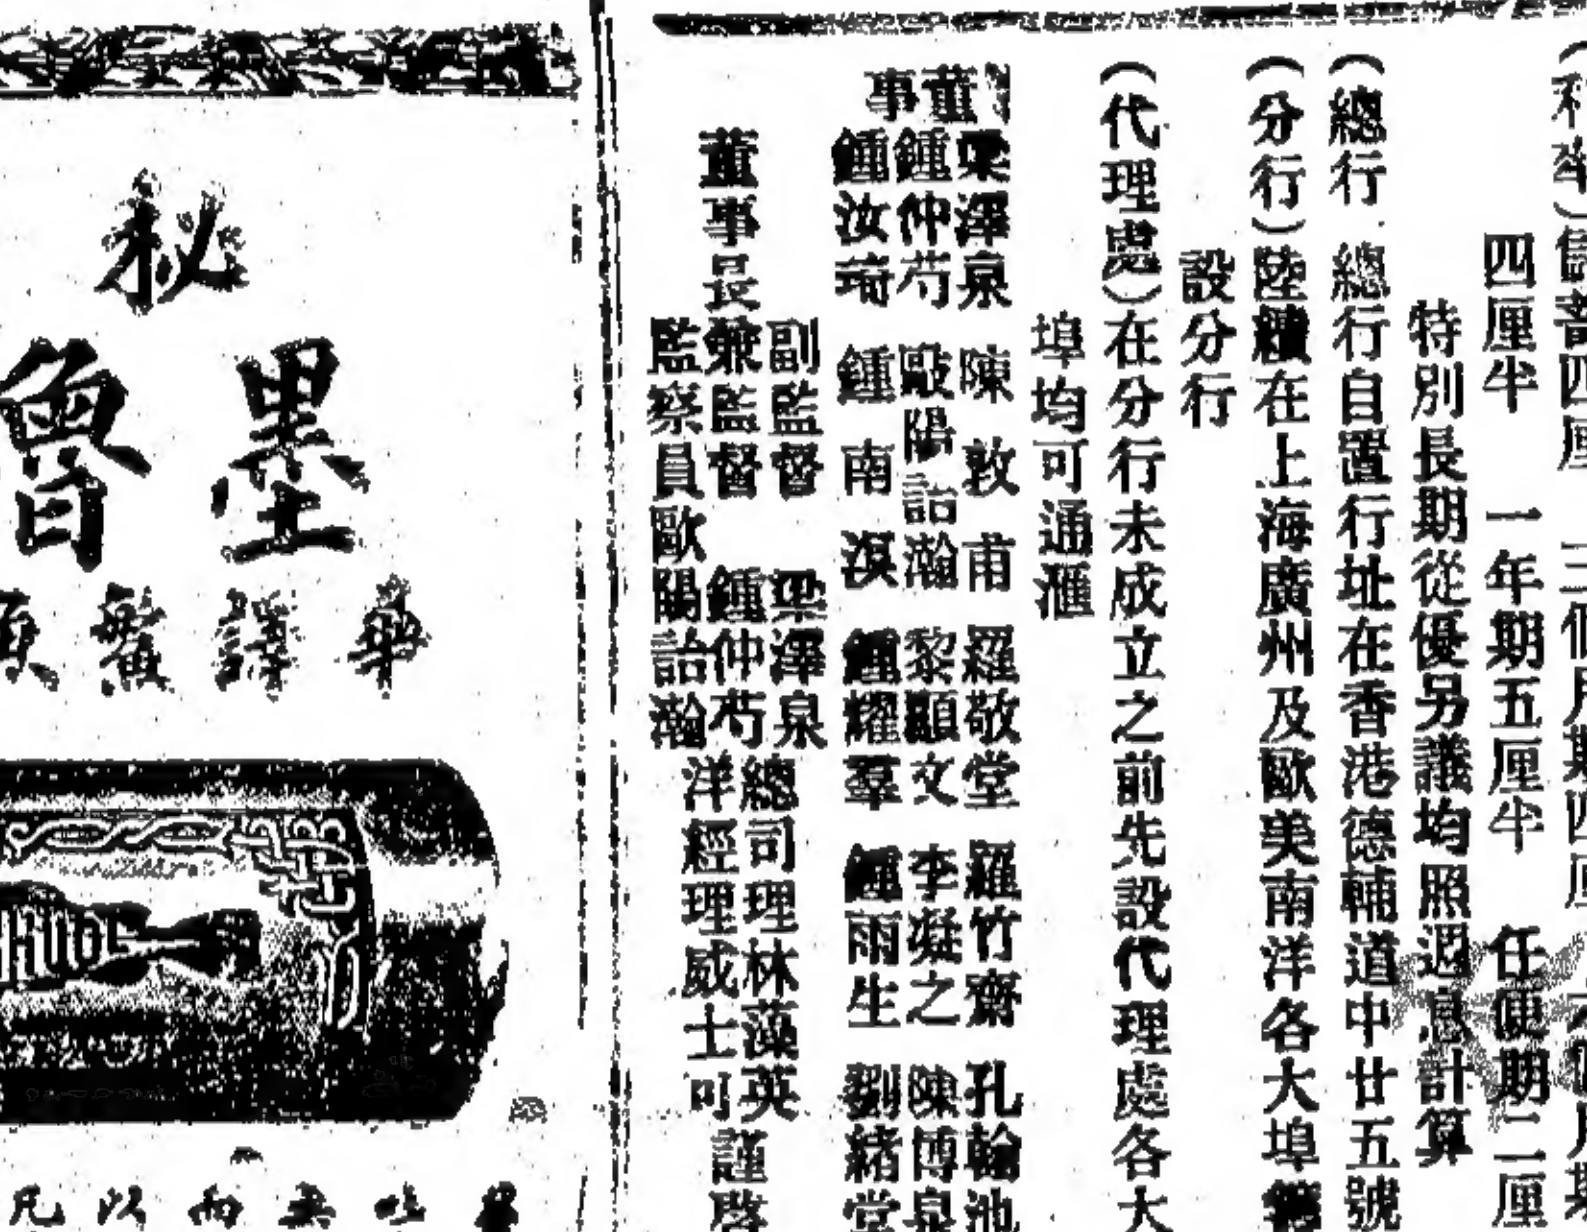 (利率)儲蓄四厘　三個月期四厘　六個月期
四厘半　一年期五厘半　任便期二厘
特別長期從優另議均照週息計算
(總行　總行自置行址在香港德輔道中廿五號
(分行)陸續在上海廣州及歐美南洋各大埠籌
設分行
(代理處)在分行未成立之前先設代理處各大
埠均可通滙
董事
梁澤泉　陳敦甫　羅敬堂　羅竹齋　孔翰池
鍾仲芍　歐陽詒瀚　黎顯文　李凝之　陳博泉
鍾汝琦　鍾南溟　鍾耀羣　鍾雨生　劉緒堂
副監督　梁澤泉
董事長兼監督　鍾仲芍
監察員歐陽詒瀚
總司理林藻英
洋經理威士可
謹啓
秘
墨魯
華譯
以凡